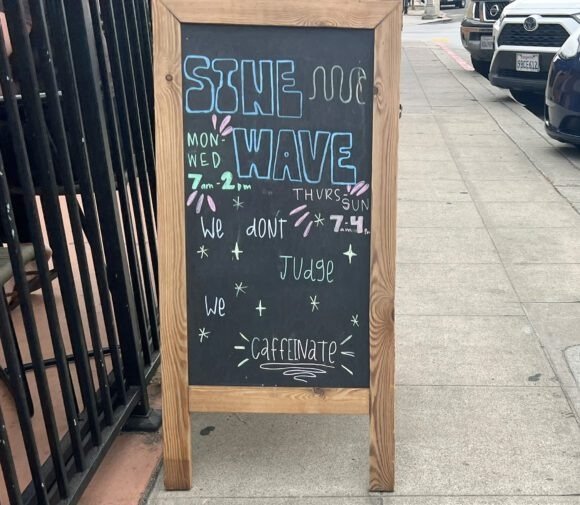 SINE
WAVE
MON-
WED
7am-2pm
THURS-
SUN
7am-4pm
We don't
Judge
We
CaffEINATE